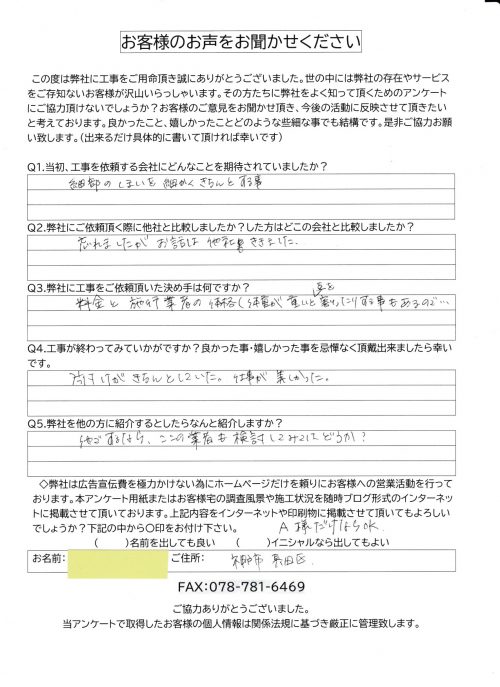 お客様のお声をお聞かせください
この度は弊社に工事をご用命頂き誠にありがとうございました。世の中には弊社の存在やサービス
をご存知ないお客様が沢山いらっしゃいます。その方たちに弊社をよく知って頂くためのアンケート
にご協力頂けないでしょうか？お客様のご意見をお聞かせ頂き、今後の活動に反映させて頂きたい
と考えております。良かったこと、嬉しかったことどのような些細な事でも結構です。是非ご協力お願
い致します。(出来るだけ具体的に書いて頂ければ幸いです)
Q1.当初、工事を依頼する会社にどんなことを期待されていましたか？
細部のしまいを細かくきちんとする事
Q2.弊社にご依頼頂く際に他社と比較しましたか？した方はどこの会社と比較しましたか？
忘れましたがお話は他社もききました。
Q3.弊社に工事をご依頼頂いた決め手は何ですか？
料金と施行業者の
Q4.工事が終わってみていかがですか？良かった事・嬉しかった事を忌憚なく頂戴出来ましたら幸い
です。
片付けがきちんとしていた。仕事が美しかった。
Q5.弊社を他の方に紹介するとしたらなんと紹介しますか？
他でするなら、ここの業者も検討してみてはどうか？
◇弊社は広告宣伝費を極力かけない為にホームページだけを頼りにお客様への営業活動を行って
おります。本アンケート用紙またはお客様宅の調査風景や施工状況を随時ブログ形式のインターネッ
トに掲載させて頂いております。上記内容をインターネットや印刷物に掲載させて頂いてもよろしい
でしょうか？下記の中から〇印をお付け下さい。 A様だけならOK
( )名前を出しても良い ( )イニシャルなら出してもよい
お名前： ご住所： 神戸市 長田区
FAX:078-781-6469
ご協力ありがとうございました。
当アンケートで取得したお客様の個人情報は関係法規に基づき厳正に管理致します。